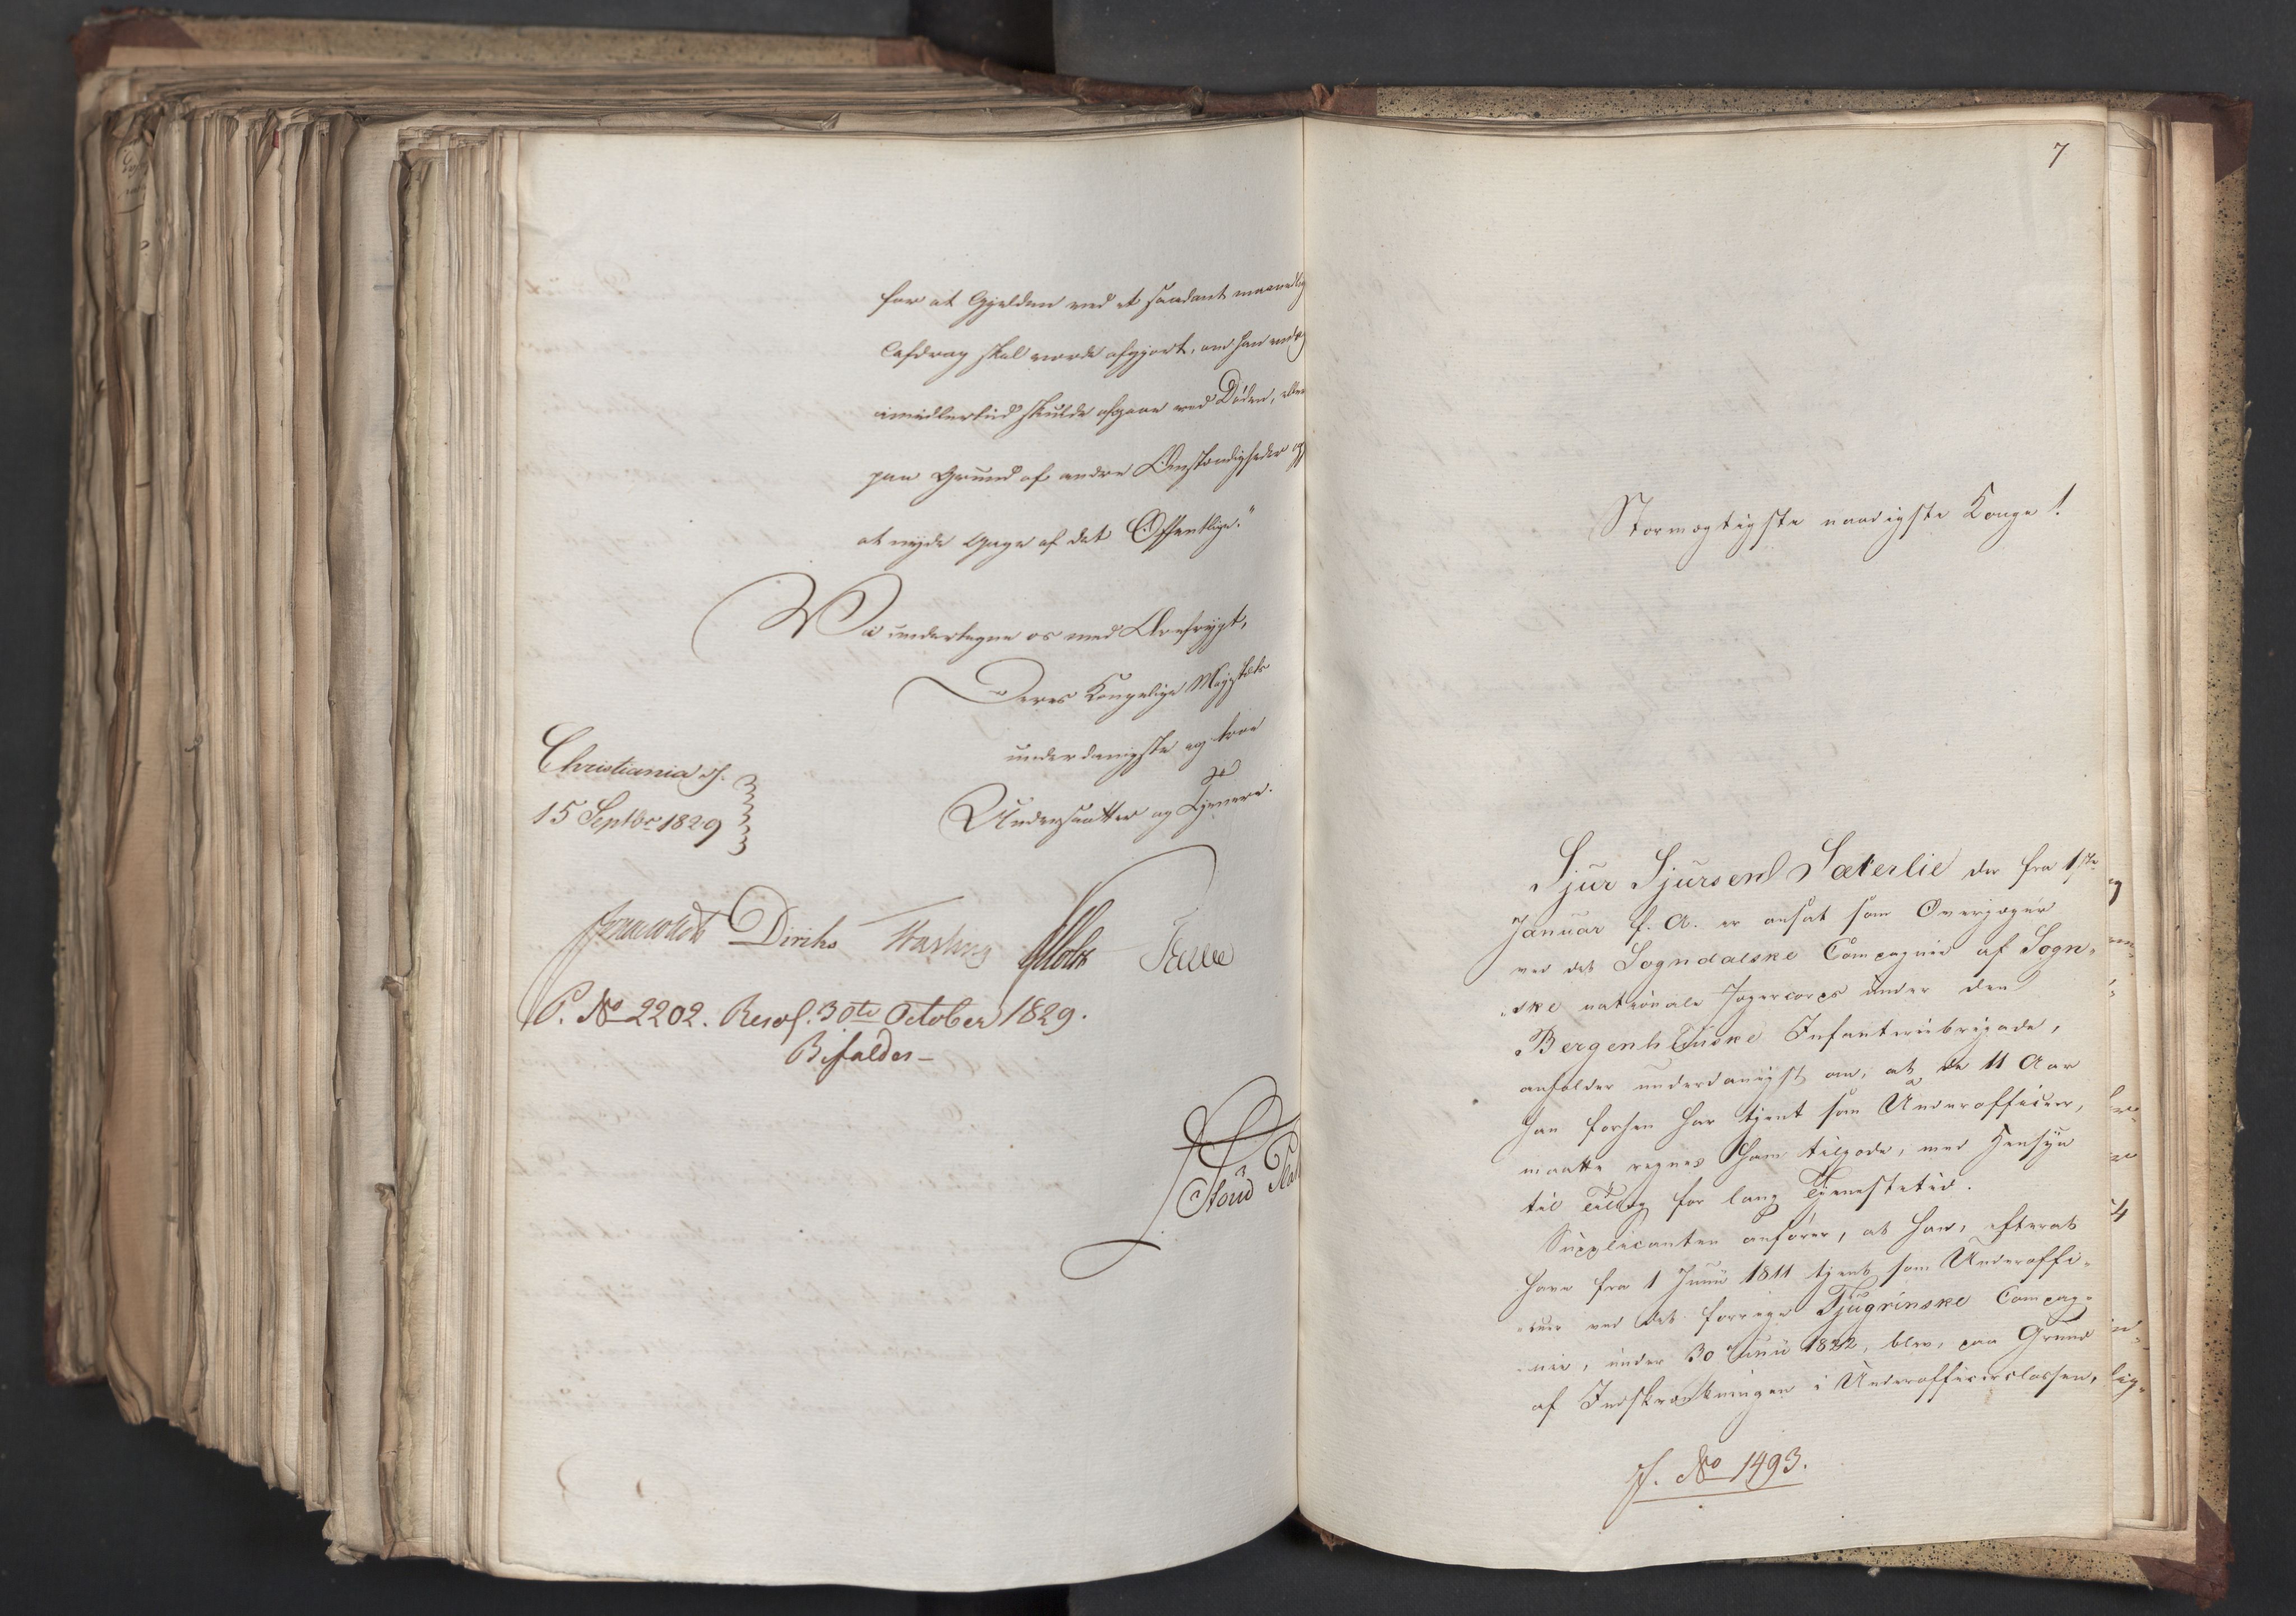 for at Gjelden ved et saadant maanedlig
Afdrag skal vorde afgjort, om han endog
imidlertid skulde afgaae ved Døden, eller
paa Grund af andre Omstændigheder
at nyde Gage af det Offentlige."
Vi undertegne os med Ærefrygt,
Deres Kongelige Majestæts
underdanigste og troe
Undersaatter og Tjenere.
Christiania d.
15 Septbr 1829
Diriks
P. No 2202. Resol. 30te October 1829.
Bifaldes
7
Stormægtigste naadigste Konge!
Sjur Sjursen Sæterlie der fra 1ste
Januar f. A. er ansat som Overjæger
ved det Sogndalske Compagnie af Sogn-
-ske nationale Jægercorps under den
Bergenhuuske Infanteriebrigade,
anholder underdanigst om, at de 11 Aar
han forhen har tjent som Underofficeer,
maatte regnes ham tilgode, med Hensyn
til Tillæg for lang Tjenestetid.
Supplicanten anfører, at han, efterat
have fra 1 Junii 1811 tjent som Underoffi-
-ceer ved det forrige Tjugrinske Compag-
-nie, under 30 Junii 1822, blev, paa Grund
af Indskrænkningen i Underofficeersclassen,
J. No 1493.